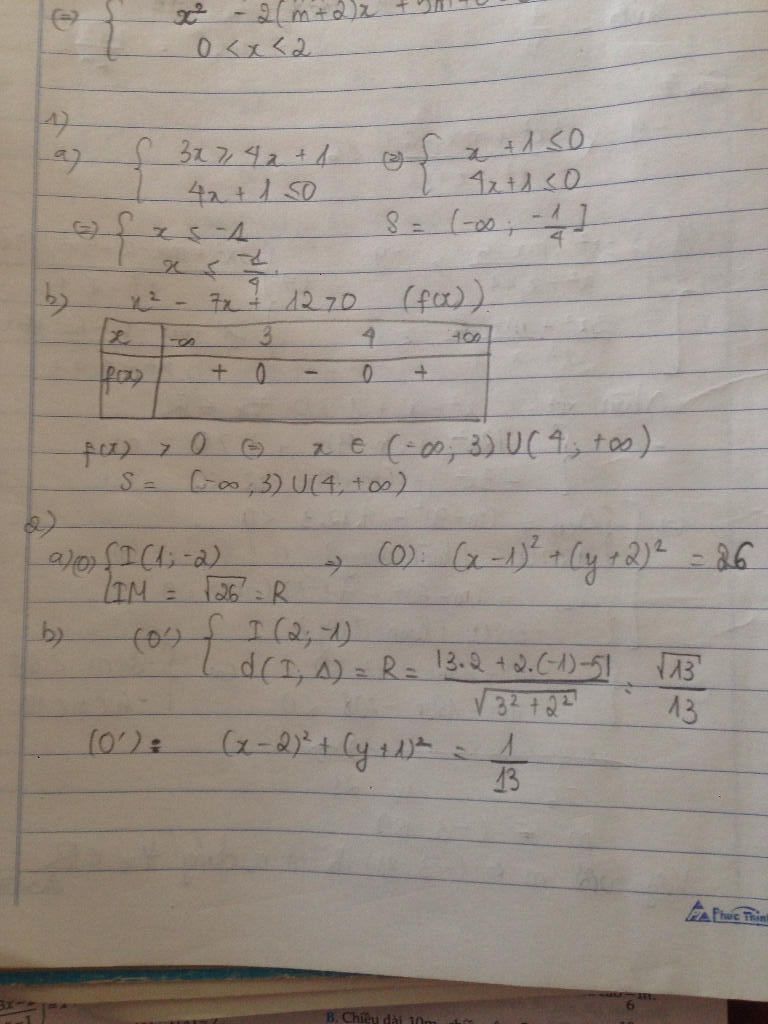 (=) { x² - 2(m+2)x + 5m+6
0 < x < 2
1)
a) { 3x ≥ 4x + 1 (=) { x + 1 ≤ 0
4x + 1 ≤ 0 4x+1 ≤ 0
(=) { x ≤ -1 S = (-∞ ; -1/4]
x ≤ -1/4
b) x² - 7x + 12 > 0 (f(x))
x -∞ 3 4 +∞
f(x) + 0 - 0 +
f(x) > 0 (=) x ∈ (-∞; 3) U (4; +∞)
S = (-∞; 3) U (4; +∞)
2)
a) (O) { I(1; -2) => (O): (x-1)² + (y+2)² = 26
IM = √26 = R
b) (O') { I(2; -1)
d(I, Δ) = R = |3.2 + 2.(-1) - 5| / √(3² + 2²) = √13 / 13
(O'): (x-2)² + (y+1)² = 1/13
Phuc Thinh
B. Chiều dài 10m
6